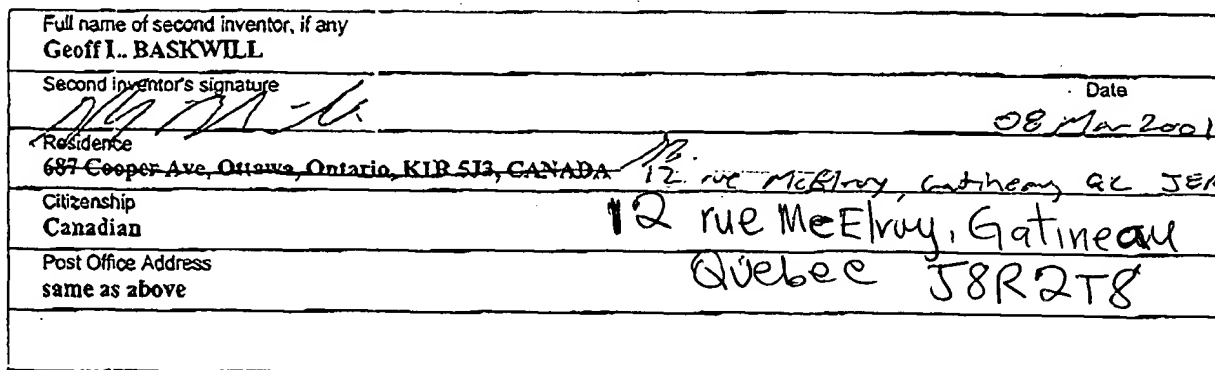 Full name of second inventor, if any
Geoff L. BASKWILL
Second inventor's signature
Date
08 Mar 2001
Residence
687 Cooper Ave, Ottawa, Ontario, K1R 5J3, CANADA 12 rue McElroy, Gatineau QC
Citizenship
Canadian
12 rue McElroy, Gatineau
Post Office Address
same as above
Quebec J8R2T8